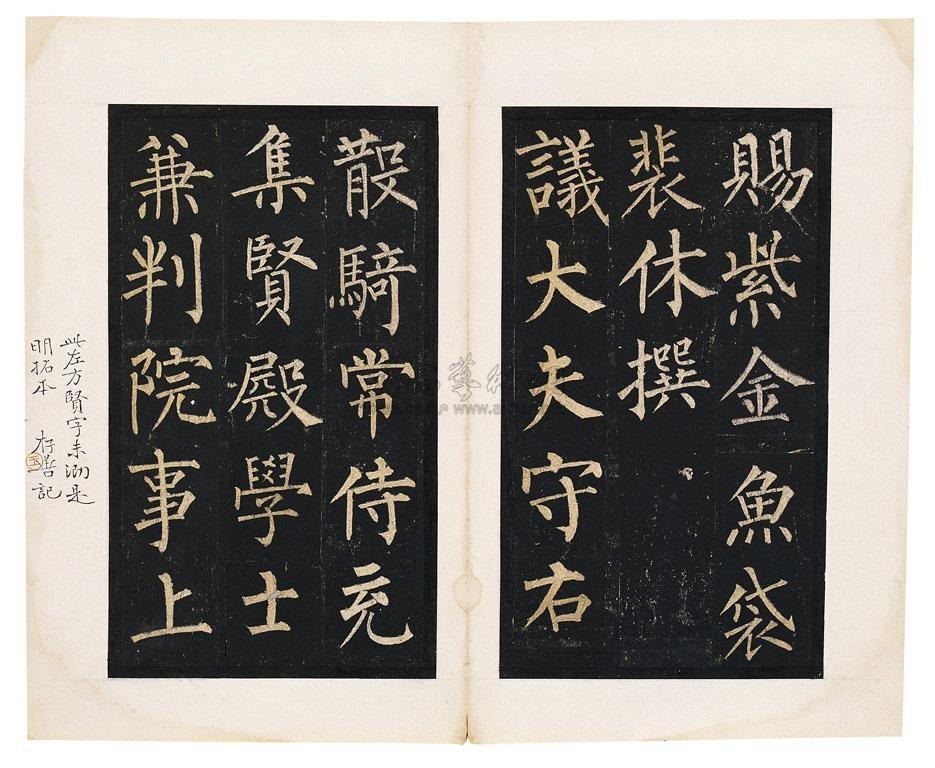 賜紫金魚袋
裴休撰
議大夫守右
散騎常侍充
集賢殿學士
兼判院事上
此左方賢字未泐是
明拓本 存善記
www.a